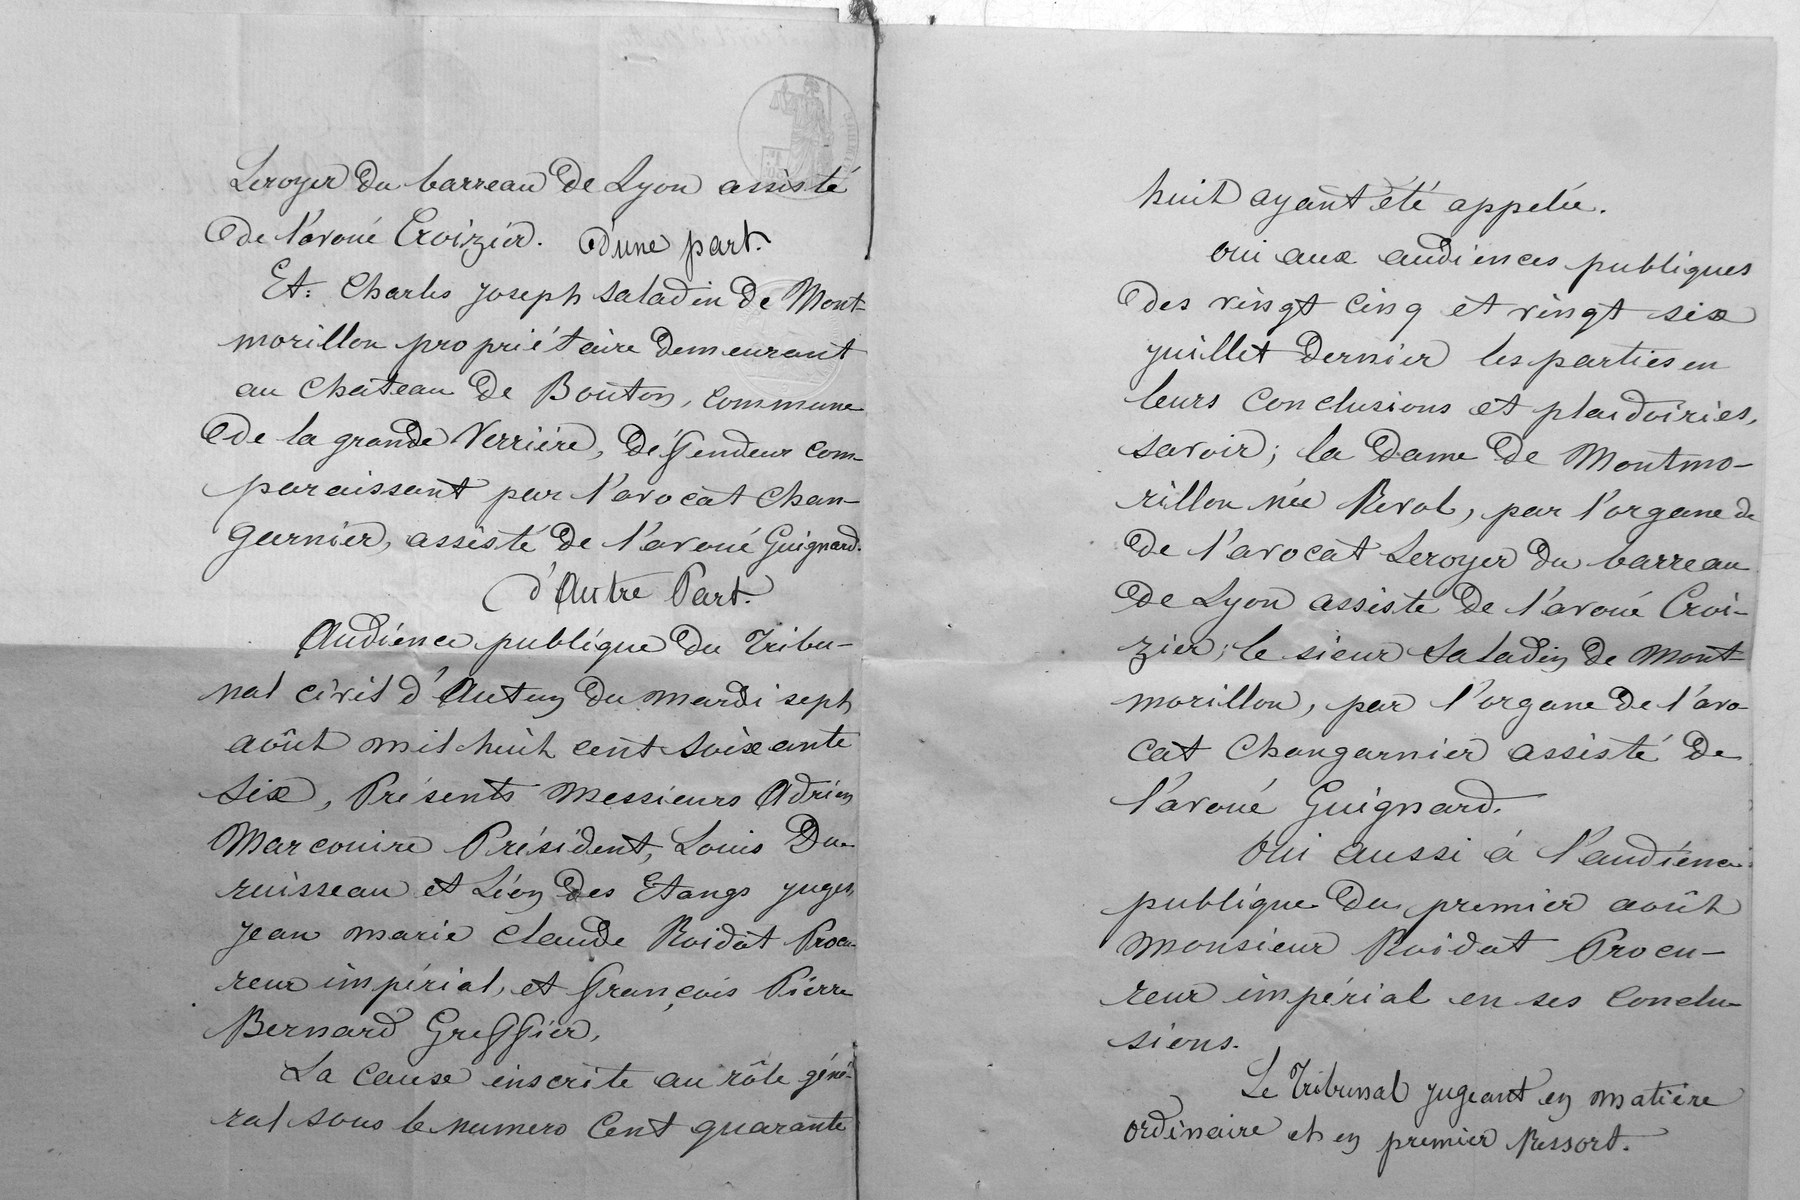 Leroyer du barreau de Lyon assisté
de l'avoué Croizier. D'une part.
Et: Charles Joseph Saladin de Mont-
morillon propriétaire demeurant
au chateau de Bouton, commune
de la grande Verrière, déffendeur com-
paraissant par l'avocat Chan-
garnier, assisté de l'avoué Guignard.
d'Autre Part.
Audience publique du Tribu-
nal civil d'Autun du mardi sept
août mil huit cent soixante
six, Présents Messieurs Adrien
Marcouire Président, Louis Du-
ruisseau et Léon des Etangs juges
Jean Marie Claude Roidot Procu-
reur impérial, et François Pierre
Bernard Greffier.
La cause inscrite au rôle géné-
ral sous le numero Cent quarante
huit ayant été appelée.
Oui aux audiences publiques
des vingt cinq et vingt six
juillet dernier les parties en
leurs conclusions et plaidoiries,
savoir; la dame de Montmo-
rillon née Revol, par l'organe de
de l'avocat Leroyer du barreau
de Lyon assisté de l'avoué Croi-
zier; le sieur Saladin de Mont-
morillon, par l'organe de l'avo-
cat Changarnier assisté de
l'avoué Guignard.
Oui aussi à l'audience
publique du premier août
Monsieur Roidot Procu-
reur impérial en ses conclu-
sions.
Le Tribunal jugeant en matière
ordinaire et en premier Ressort.